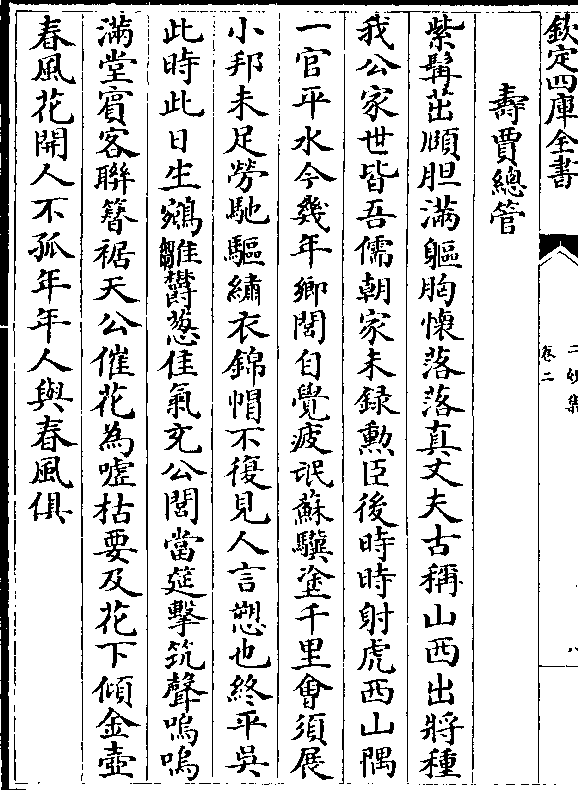 欽定四庫全書
卷二
壽賈總管
紫髯茁頤胆滿軀胸懷落落真丈夫古稱山西出將種
我公家世皆吾儒朝家未録勲臣後時時射虎西山隅
一官平水今幾年鄉閭自覺疲氓蘇驥塗千里會須展
小邦未足勞馳驅繡衣錦帽不復見人言愬也終平吳
此時此日生鵷雛鬱葱佳氣充公閭當筵擊筑聲嗚嗚
滿堂賓客聯簪裾天公催花為嘘枯要及花下傾金壺
春風花開人不孤年年人與春風俱